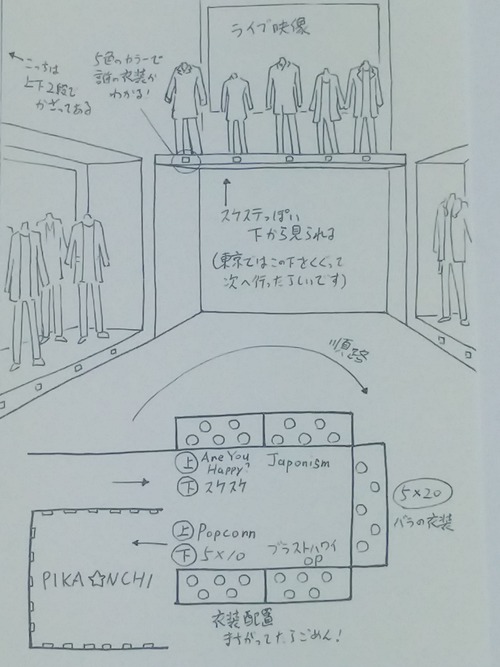 ライブ映像
こっちは
上下2段で
かざってある
5色のカラーで
誰の衣装か
わかる!
スケステっぽい
下から見られる
(東京ではこの下をくぐって
次へ行ったらしいです)
順路
上 Are You
Happy?
Japonism
下 スケスケ
5×20
バラの衣装
上 Popcorn
下 5×10
ブラストハワイ
OP
PIKA☆NCHI
衣装配置
まちがってたらごめん!